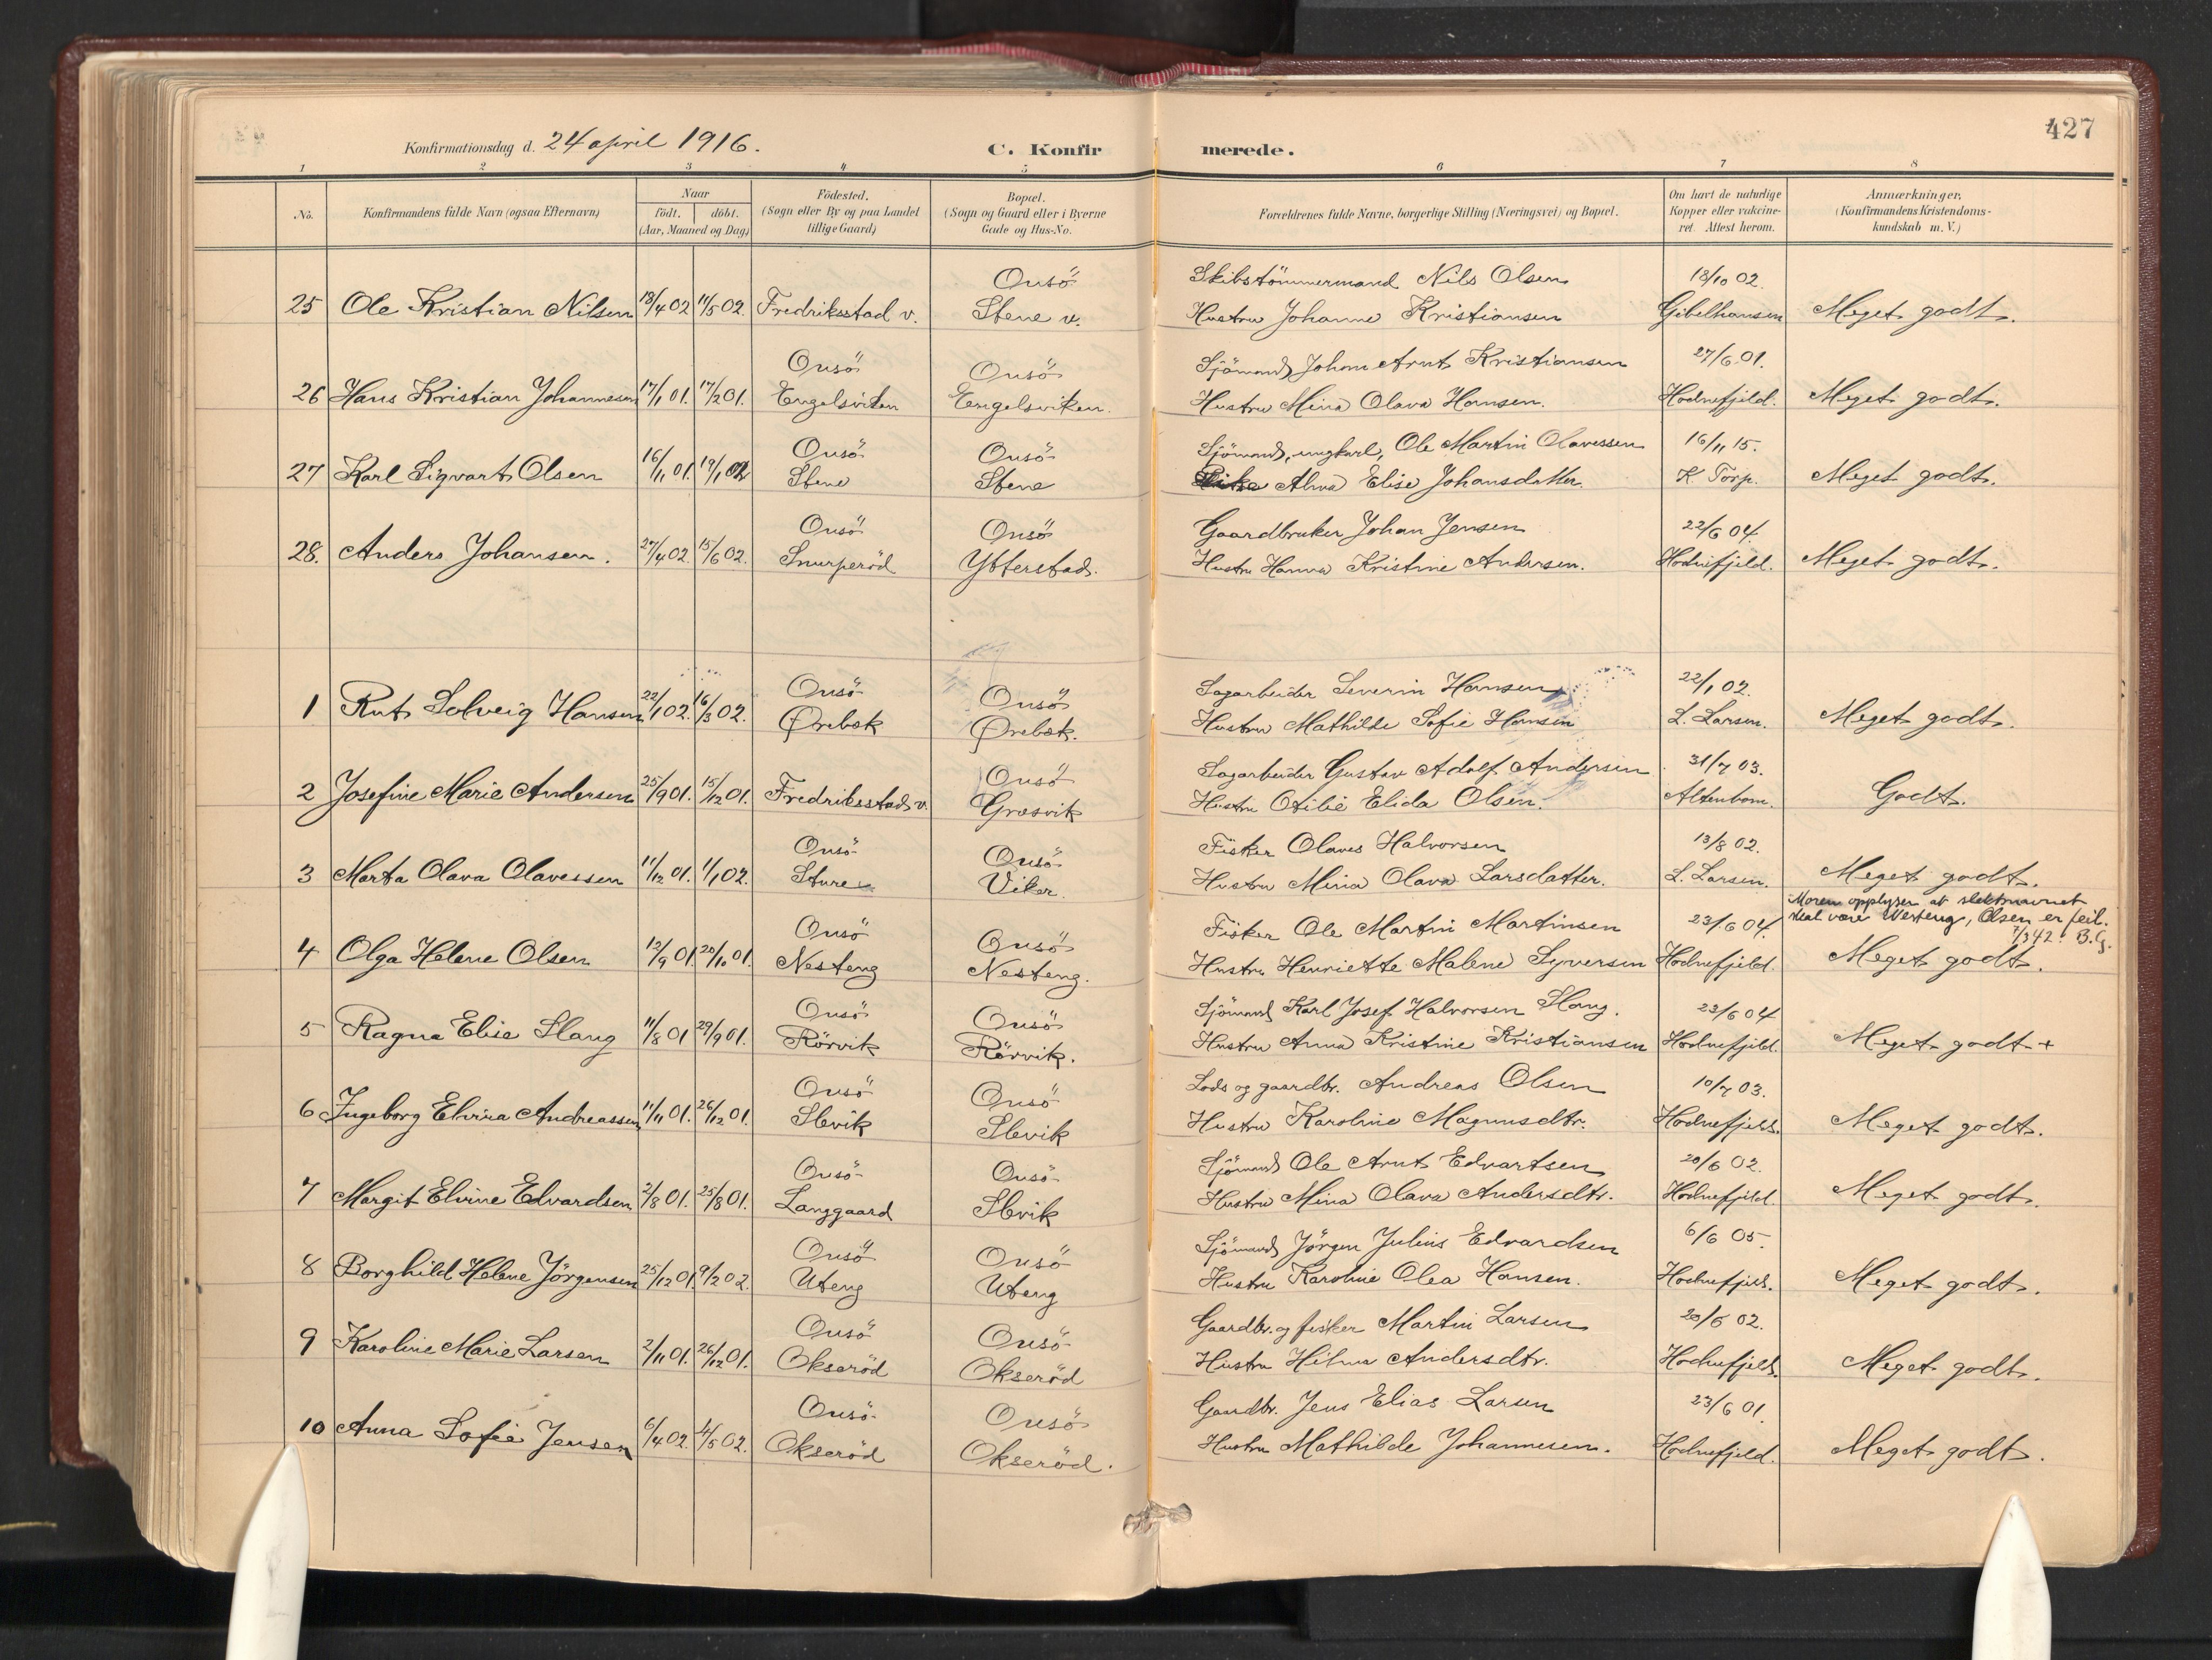 427
Konfirmationsdag d. 24 april 1916.
C. Konfirmerede.
1 2 3 4 5 6 7 8
No.
Konfirmandens fulde Navn (ogsaa Efternavn)
Naar
födt. döbt.
(Aar, Maaned og Dag)
Födested.
(Sogn eller By og paa Landet
tillige Gaard)
Bopæl.
(Sogn og Gaard eller i Byerne
Gade og Hus-No.
Forældrenes fulde Navne, borgerlige Stilling (Næringsvei) og Bopæl.
Om havt de naturlige
Kopper eller vakcine-
ret. Attest herom.
Anmærkninger.
(Konfirmandens Kristendoms-
kundskab m. V.)
Onsö Skibstömmermand Nils Olsen 18/10 02.
25 Ole Kristian Nilsen 18/4 02 11/5 02. Fredriksstad v. Stene v. Hustru Johanne Kristiansen Gibelhausen Meget godt.
Onsö Onsö Sjömand Johan Arnt Kristiansen 27/6 01.
26 Hans Kristian Johannesen 17/1 01. 17/2 01. Engelsviken Engelsviken. Hustru Mina Olava Hansen. Hodnefjeld. Meget godt.
Onsö Onsö Sjömand, ungkarl, Ole Martin Olavessen 16/11 15.
27 Karl Sigvart Olsen 16/11 01. 19/1 02 Stene Stene Alma Elise Johansdatter K. Torp. Meget godt.
Onsö Onsö Gaardbruker Johan Jensen 22/6 04.
28. Anders Johansen. 27/4 02. 15/6 02. Snurperöd Ytterstad. Hustru Hanna Kristine Andersen. Hodnefjeld. Meget godt.
Onsö Onsö Sagarbeider Severin Hansen 22/1 02.
1 Rut Solveig Hansen 22/1 02. 16/3 02. Ørebæk Ørebæk. Hustru Mathilde Sofie Hansen L. Larsen. Meget godt.
Onsö Sagarbeider Gustav Adolf Andersen 31/7 03.
2 Josefine Marie Andersen 25/9 01. 15/12 01. Fredriksstad v. Græsvik Hustru Otilie Elida Olsen. Altenborn. Godt.
Onsö Onsö Fisker Olaves Halvorsen 13/8 02.
3 Marta Olava Olavessen 11/12 01. 1/1 02. Sture Viker. Hustru Mina Olava Larsdatter. L. Larsen. Meget godt.
Moren opplyser at slektsnavnet
skal være Nesteng, Olsen er feil.
7/3 42. B.G.
Onsö Onsö Fisker Ole Martin Martinsen 23/6 04.
4 Olga Helene Olsen 12/9 01. 20/10 01. Nesteng Nesteng. Hustru Henriette Malene Syversen Hodnefjeld. Meget godt.
Onsö Onsö Sjömand Karl Josef Halvorsen Slang. 23/6 04
5 Ragna Elise Slang 11/8 01 29/9 01. Rörvik Rörvik. Hustru Anna Kristine Kristiansen Hodnefjeld. Meget godt +
Onsö Onsö Lods og gaardbr. Andreas Olsen 10/7 03.
6 Ingeborg Elvira Andreassen 11/11 01. 26/12 01. Slevik Slevik Hustru Karoline Magnusdtr. Hodnefjeld. Meget godt.
Onsö Onsö Sjömand Ole Arnt Edvartsen 20/6 02.
7 Margit Elvine Edvardsen 2/8 01. 25/8 01. Langgaard Slevik Hustru Mina Olava Andersdtr. Hodnefjeld. Meget godt.
Onsö Onsö Sjömand Jörgen Julius Edvardsen 6/6 05.
8 Borghild Helene Jörgensen 25/12 01. 9/2 02. Uteng Uteng Hustru Karoline Olea Hansen. Hodnefjeld. Meget godt.
Onsö Onsö Gaardbr. og fisker Martin Larsen 20/6 02.
9 Karoline Marie Larsen 2/11 01. 26/12 01. Okseröd Okseröd Hustru Hilma Andersdtr. Hodnefjeld. Meget godt.
Onsö Onsö Gaardbr. Jens Elias Larsen 23/6 01.
10 Anna Sofie Jensen 6/4 02. 4/5 02. Okseröd Okseröd. Hustru Mathilde Johannesen. Hodnefjeld. Meget godt.